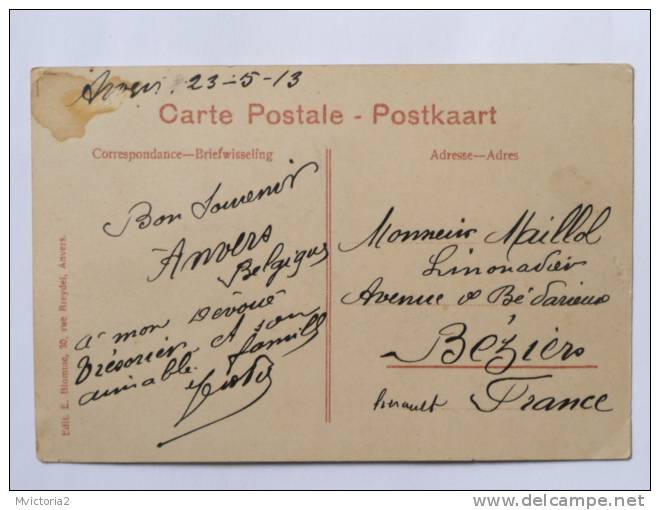 Anvers. 23-5-13
Carte Postale - Postkaart
Correspondance—Briefwisseling
Adresse—Adres
Bon Souvenir
Anvers
Belgique
a mon Dévoué
Trésorier et son
aimable famille
Monsieur Maillol
Limonadier
Avenue de Bédarieux
Béziers
Herault France
Edit. E. Blomme, 30, rue Anvers.
Mvictoria2
delcampe.net